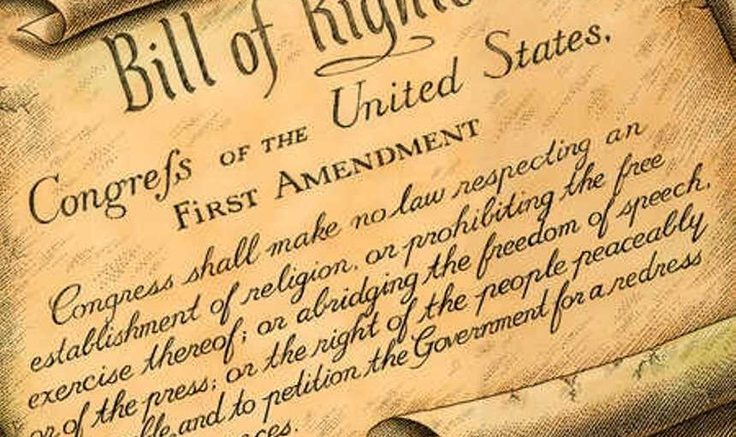 Bill of Rights
Congreſs OF THE United States,
FIRST AMENDMENT
Congress shall make no law respecting an
establishment of religion, or prohibiting the free
exercise thereof; or abridging the freedom of speech,
or of the press; or the right of the people peaceably
and to petition the Government for a redress